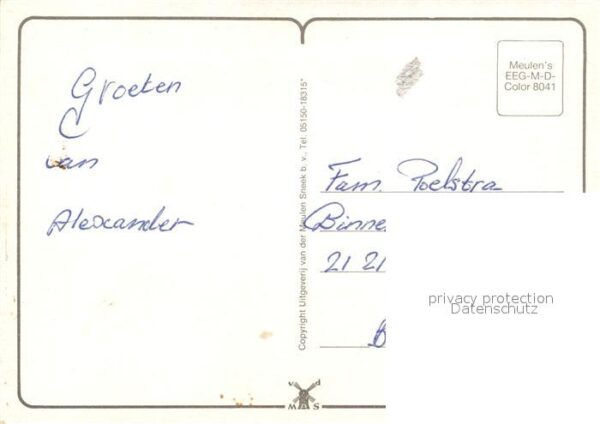 Groeten
van
Alexander
Copyright Uitgeverij van der Meulen Sneek b. v., Tel. 05150-18315*
Meulen's
EEG-M-D-
Color 8041
Fam. Poelstra
Binne
21 21
B
privacy protection
Datenschutz
v d
M S